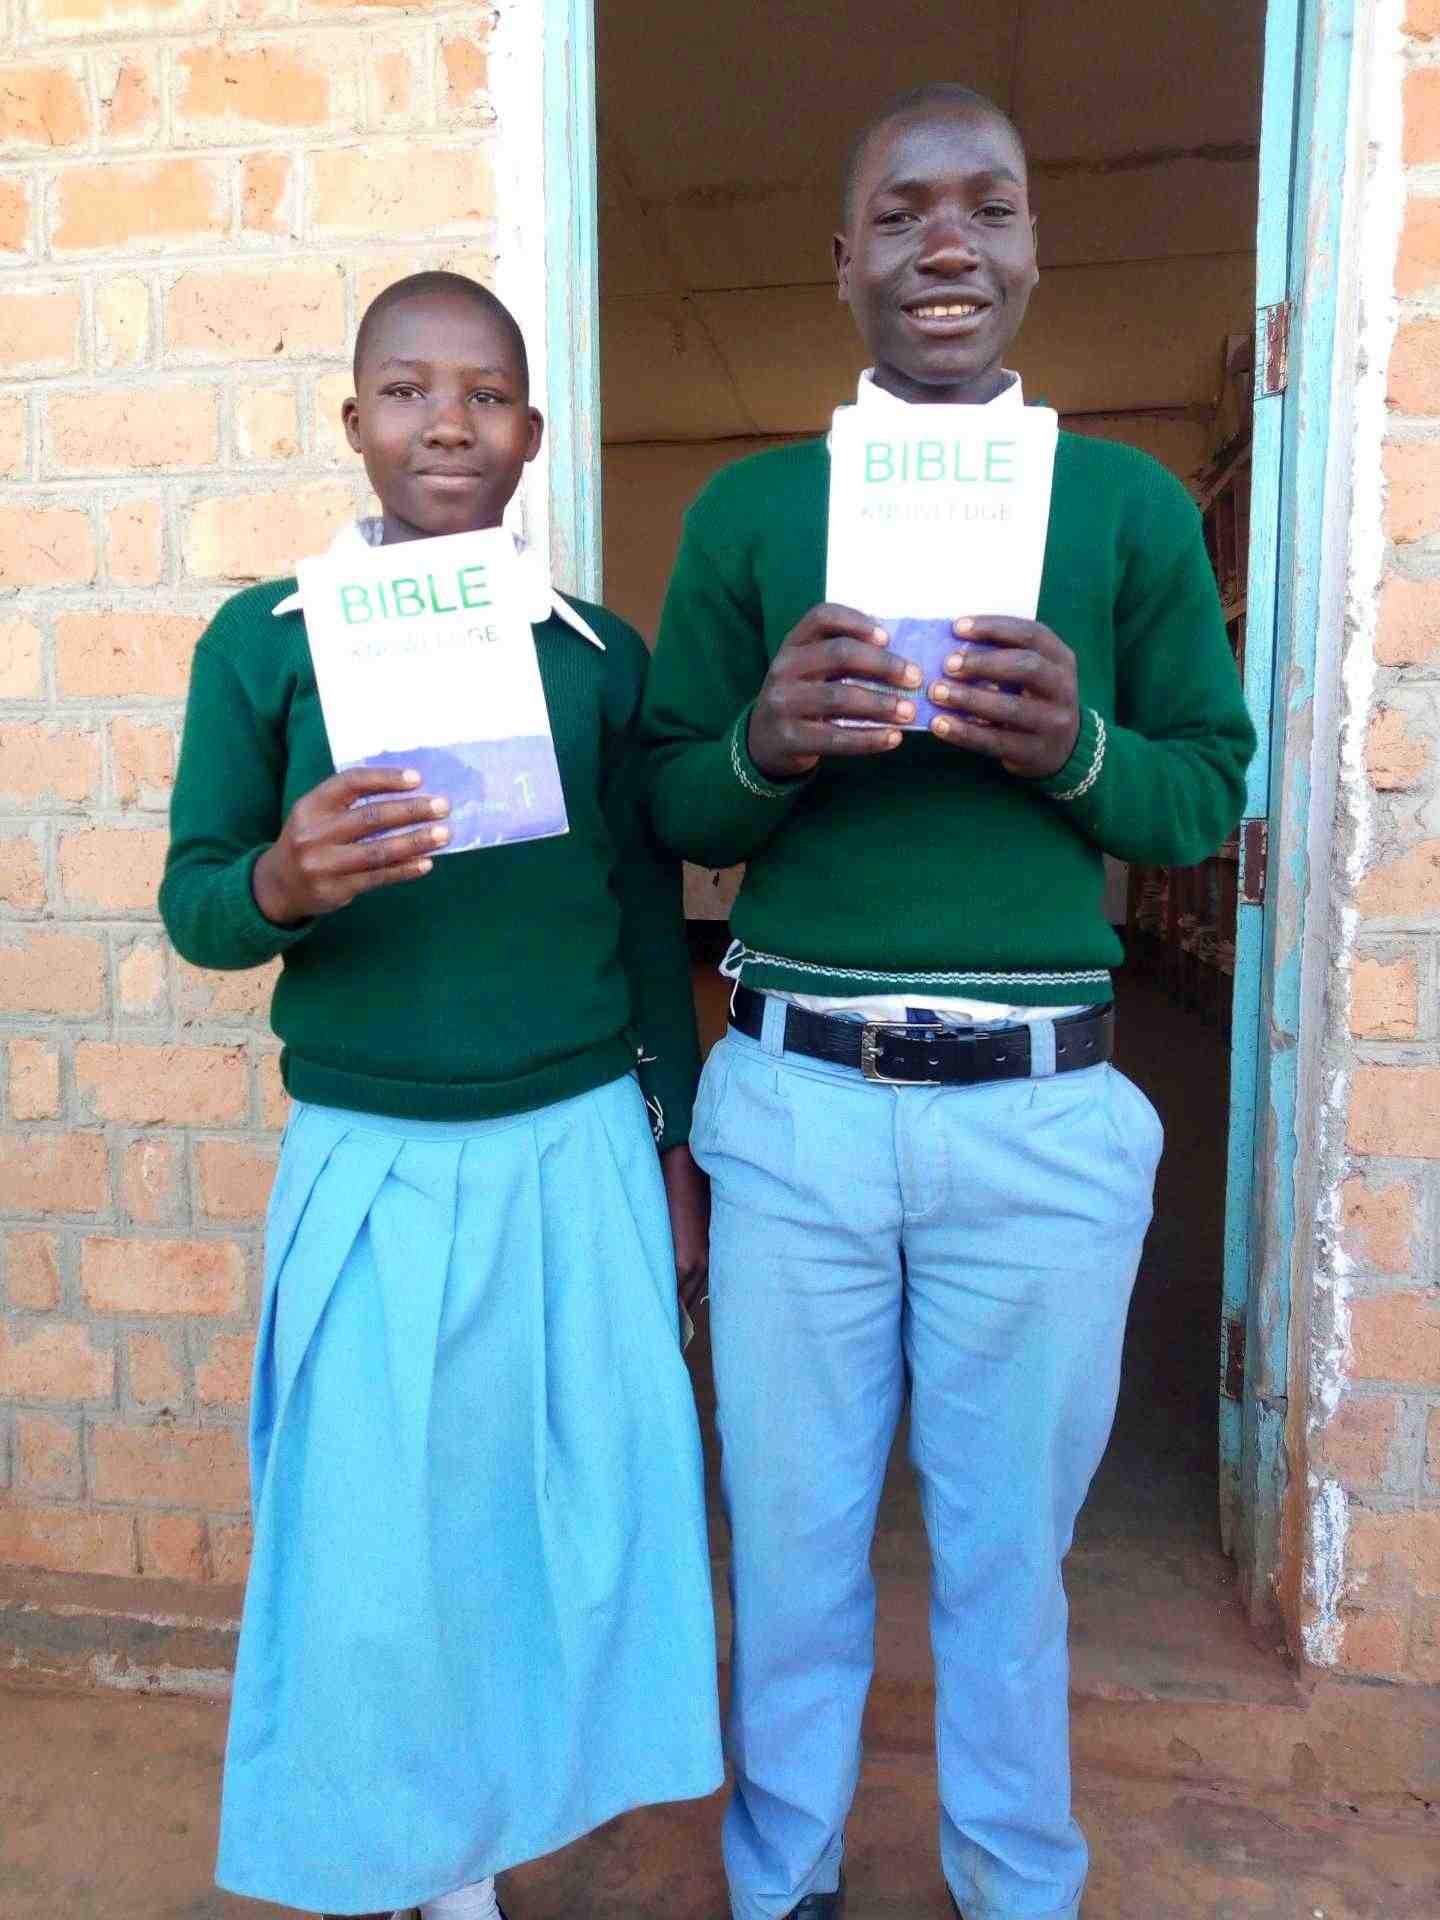 BIBLE
KNOWLEDGE
BIBLE
KNOWLEDGE